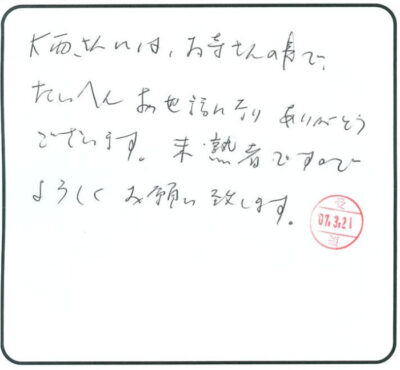 大西さんには、お寺さんの事で、
たいへん お世話になり ありがとう
ございます。未熟者ですので
よろしく お願い致します。
07.3.21